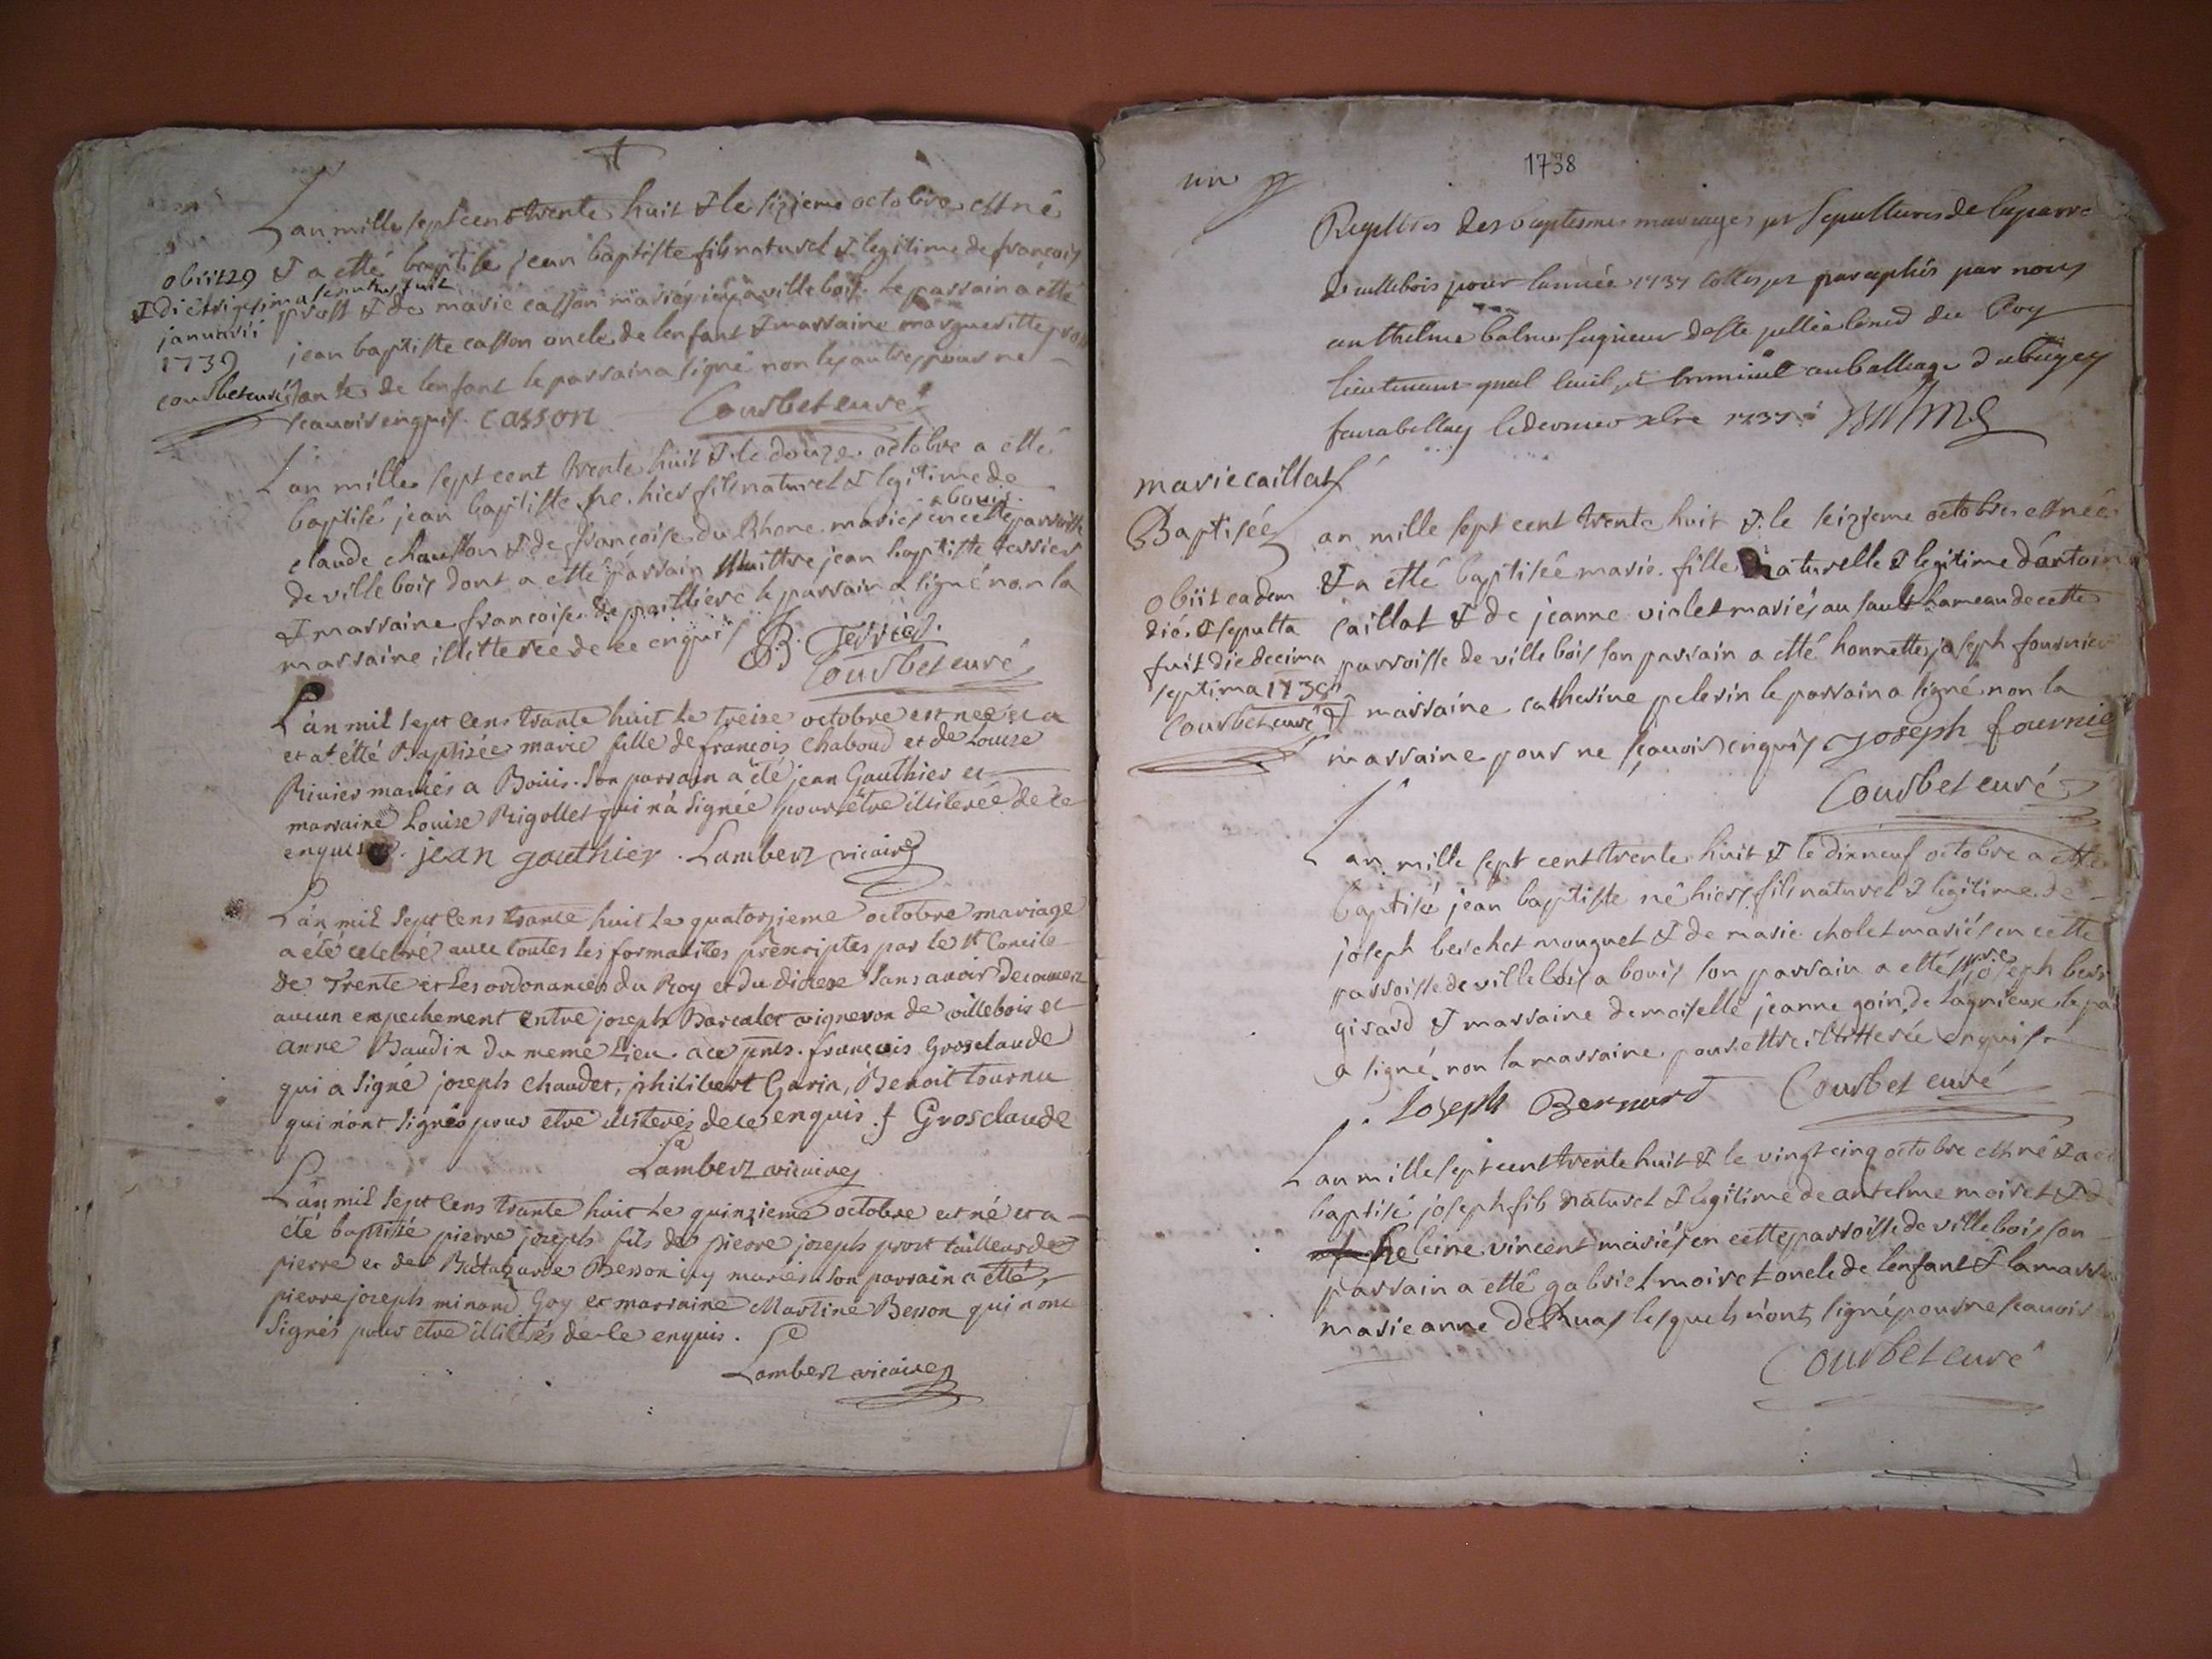 L'an mille sept cent trente huit & le sizieme octobre est né
& a etté baptisé jean baptiste fils naturel & legitime de françois
prost & de marie casson mariés icy a ville bois. le parrain a été
jean baptiste casson oncle de lenfant & marraine margueritte prost
tante de lenfant le parrain a signé non les autres pour ne
scauoir enquis. casson Courbet curé
obiit 29
& die trigesima sepultus fuit
januarii
1739
courbet curé
L'an mille sept cent trente huit & le douze octobre a etté
baptisé jean baptiste né hier fils naturel & legitime de
claude chausson & de françoise du Rhone mariés en cette parroisse
a bouis
de ville bois dont a etté parrain Maittre jean baptiste tessier
& marraine francoise de le parrain a signé non la
marraine illitterée de ce enquis B. Tessier.
Courbet curé
L'an mil sept cens trante huit le treize octobre est neé et a
et at étté Baptisée marie fille de françois Chaboud et de Louise
Riuier mariés a Bouis. Son parrain a été jean Gauthier et
marraine Louise Rigollet qui n'a signée pour être illiterée de ce
enquise. jean gauthier. Lambert vicaire
L'an mil sept cens trante huit le quatorzieme octobre mariage
a été celebré auec toutes les formalites prescriptes par le st Concile
de Trente et les ordonances du Roy et du diocese sans auoir decouuert
aucun enpechement entre joseph Barcalet vigneron de villebois et
anne Baudin du meme Lieu. ace pnts. françois Grosclaude
qui a signé joseph Chaudet, philibert Garin, Benoit tournu
qui n'ont signés pour etre illiterés de ce enquis. f Grosclaude
Lambert vicaire
L'an mil sept cens trante huit le quinzieme octobre est né et a
été baptisé pierre joseph fils de pierre joseph prost tailleur de
pierre et de Besson icy mariés. son parrain a etté
pierre joseph minand Goy et marraine Martine Besson qui n'ont
signés pour etre illiterés de ce enquis.
Lambert vicaire
un
1738
Registres des baptesmes mariages et Sepultures de la parre
de uillebois pour lannée 1737 Cottes et paraphés par nous
anthelme balme seigneur de ste jullie Conser du Roy
lieutenant gnal Ciuil et Criminel au balliage du bugey
fait a belley le dernier xbre 1737. Balme
marie caillat
Baptisée
L'an mille sept cent trente huit & le seizieme octobre est née
& a etté baptisée marie fille naturelle & legitime d'antoine
caillat & de jeanne violet mariés au sault hameau de cette
parroisse de ville bois son parrain a etté honnette joseph fournier
& marraine catherine pelerin le parrain a signé non la
marraine pour ne scauoir enquis joseph fournier
Courbet curé
obiit eadem
die & sepulta
fuit die decima
septima 1738
Courbet curé
L'an mille sept cent trente huit & le dixneuf octobre a etté
baptisé jean baptiste né hier fils naturel & legitime de
joseph berchet mouguet & de marie cholet mariés en cette
parroisse de ville bois a bouis son parrain a etté joseph ber
girard & marraine demoiselle jeanne goin de Lagnieux le par
a signé non la marraine pour ettre illitterée enquise
Joseph Bernard Courbet curé
L'an mille sept cent trente huit & le vingt cinq octobre est né & a et
baptisé joseph fils naturel & legitime de antelme moiret & d
heleine vincent mariés en cette parroisse de ville bois son
parrain a etté gabriel moiret oncle de lenfant & la marra
marie anne lesquels n'ont signé pour ne scauoir
Courbet curé